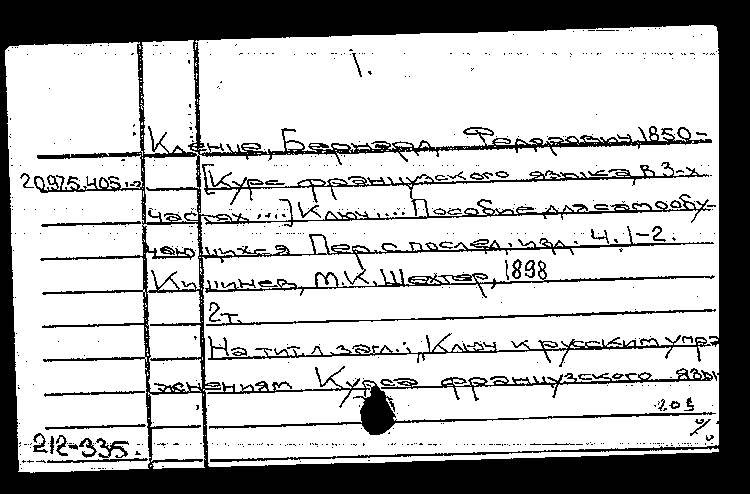 1.
Кленце, Бернард Федорович, 1850-
20.975.405.1-2 [Курс французского языка, в 3-х
частях....] Ключ.... Пособие для самообу-
чающихся Пер. с послед. изд. Ч. 1-2.
Кишинев, М.К. Шехтер, 1898
2т.
На тит. л. загл.: "Ключ к русским упра
жнениям Курса французского язы
203
212-335.